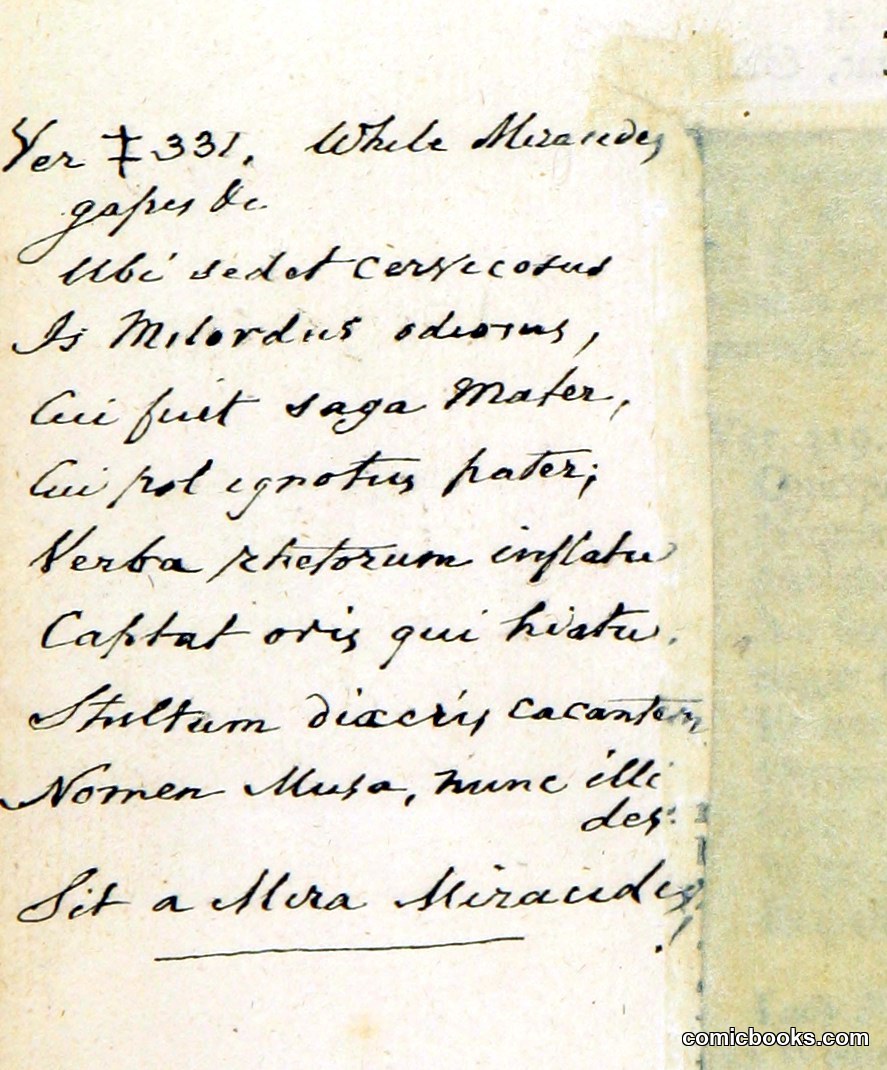 Ver ‡ 331. While Miraudes
gapes &c
Ubi sedet cervicosus
Is Milordus odiosus,
Cui fuit saga Mater,
Cui pol ignotus pater;
Verba rhetorum inflatu
Captat oris qui hiatu.
Stultum dixeris cacantem
Nomen Musa, nunc illi
des:
Sit a Mira Miraudes!
comicbooks.com